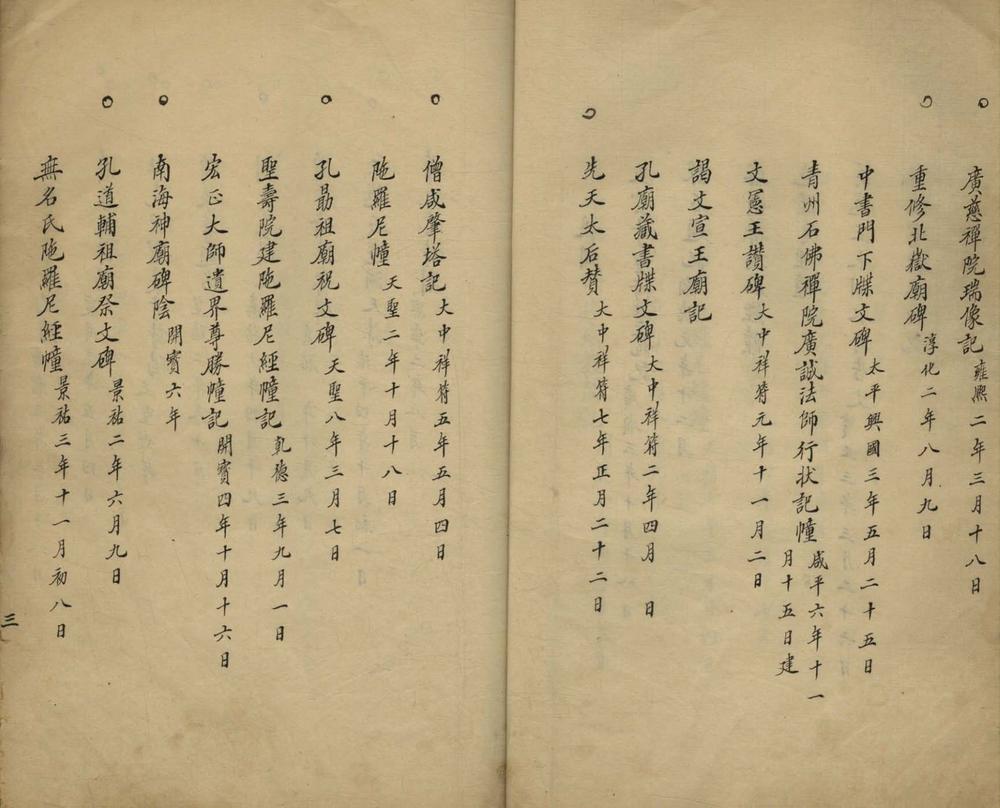 廣慈禪院瑞像記 雍熙二年三月十八日
重修北嶽廟碑 淳化二年八月九日
中書門下牒文碑 太平興國三年五月二十五日
青州石佛禪院廣誠法師行状記幢 咸平六年十一月十五日建
文憲王讚碑 大中祥符元年十一月二日
謁文宣王廟記
孔廟藏書牒文碑 大中祥符二年四月 日
先天太后賛 大中祥符七年正月二十二日
僧咸肇塔記 大中祥符五年五月四日
陁羅尼幢 天聖二年十月十八日
孔勗祖廟祝文碑 天聖八年三月七日
聖壽院建陁羅尼經幢記 乾德三年九月一日
宏正大師遺界尊勝幢記 開寶四年十月十六日
南海神廟碑陰 開寶六年
孔道輔祖廟祭文碑 景祐二年六月九日
無名氏陁羅尼經幢 景祐三年十一月初八日
三